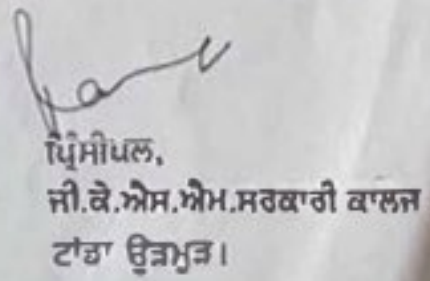 ਪ੍ਰਿੰਸੀਪਲ,
ਜੀ.ਕੇ.ਐਸ.ਐਮ.ਸਰਕਾਰੀ ਕਾਲਜ
ਟਾਂਡਾ ਉੜਮੁੜ।